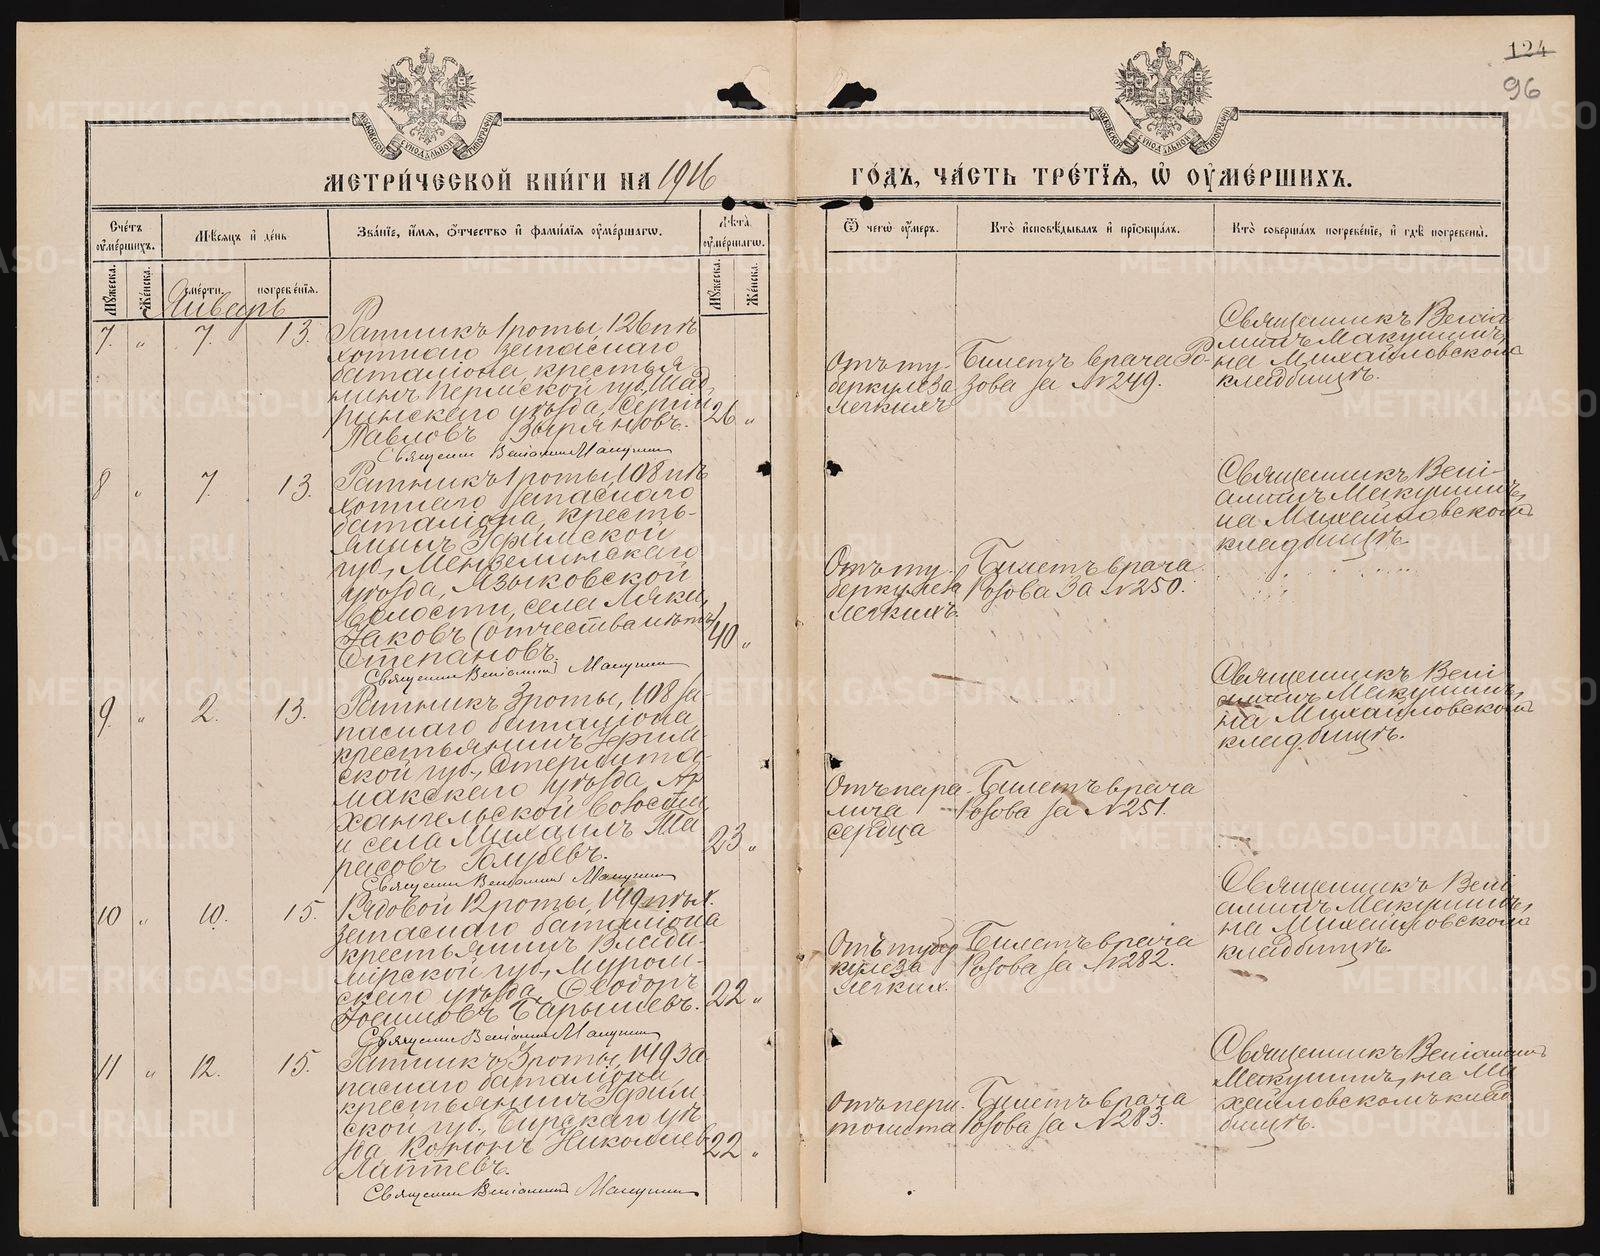 124
96
МОСКОВСКОЙ СѴНОДАЛЬНОЙ ТИПОГРАФІИ
МОСКОВСКОЙ СѴНОДАЛЬНОЙ ТИПОГРАФІИ
МЕТРИ́ЧЕСКОЙ КНИ́ГИ НА 1916
ГО́ДЪ, ЧА́СТЬ ТРЕ́ТІЯ, Ѿ ОУ҆МЕ́РШИХЪ.
Сче́тъ оу҆ме́ршихъ.
Мѣ́сяцъ и҆ де́нь
Зва́нїе, и҆́мя, ѻ҆́тчество и҆ фами́лїя оу҆ме́ршагѡ.
Лѣ́та оу҆ме́ршагѡ.
Ѿ чегѡ̀ оу҆́меръ.
Кто̀ и҆сповѣ́дывалъ и҆ прїѡбща́лъ.
Кто̀ соверша́лъ погребе́нїе, и҆ гдѣ̀ погребены̀.
Му́жеска.
Же́нска.
сме́рти.
погребе́нїя.
Му́жеска.
Же́нска.
Январь
7. „ 7. 13.
Ратникъ 1 роты, 126 пѣ
хотнаго запаснаго
баталіона, крестья
нинъ Пермской губ. Шад
ринскаго уѣзда, Сергій
Павловъ Зыряновъ.
26 „
Священник Веніаминъ Макушин
Отъ ту-
беркулеза
легкихъ
Билетъ врача Ро-
зова за №249.
Священникъ Веніа
минъ Макушинъ,
на Михайловскомъ
кладбищѣ.
8 „ 7. 13.
Ратникъ 1 роты, 108 пѣ
хотнаго запаснаго
баталіона, кресть-
янинъ Уфимской
губ., Мензелинскаго
уѣзда, Языковской
волости, села Ляки,
Іаковъ (отчества нѣтъ)
Степановъ.
40 „
Священник Веніаминъ Макушин
Отъ ту-
беркулеза
легкихъ.
Билетъ врача
Розова за №250.
Священникъ Вені-
аминъ Макушинъ,
на Михайловскомъ
кладбищѣ.
9. „ 2. 13.
Ратникъ 3 роты, 108 за-
паснаго баталіона
крестьянинъ Уфим-
ской губ., Стерлита-
макскаго уѣзда, Ар
хангельской волости
и села Михаилъ Та
расовъ Голубевъ.
23 „
Священник Веніаминъ Макушин
Отъ пара-
лича
сердца
Билетъ врача
Розова за №251.
Священникъ Вені
аминъ Макушинъ,
на Михайловскомъ
кладбищѣ.
10 „ 10. 15.
Рядовой 12 роты, 149 пѣх.
запаснаго баталіона
крестьянинъ Влади-
мірской губ., Муром-
скаго уѣзда,
Барышевъ.
22 „
Священник Веніаминъ Макушин
Отъ тубер
кулеза
легких.
Билетъ врача
Розова за №282.
Священникъ Вені
аминъ Макушинъ,
на Михайловскомъ
кладбищѣ.
11 „ 12. 15.
Ратникъ 3 роты, 149 за
паснаго баталіона
крестьянинъ Уфим-
ской губ., Бирскаго уѣз
да Кононъ Николаевъ
Лаптевъ.
22 „
Священник Веніаминъ Макушин
Отъ пери-
тонита
Билетъ врача
Розова за №283.
Священникъ Веніаминъ
Макушинъ, на Ми
хайловскомъ клад
бищѣ.
METRIKI.GASO-URAL.RU